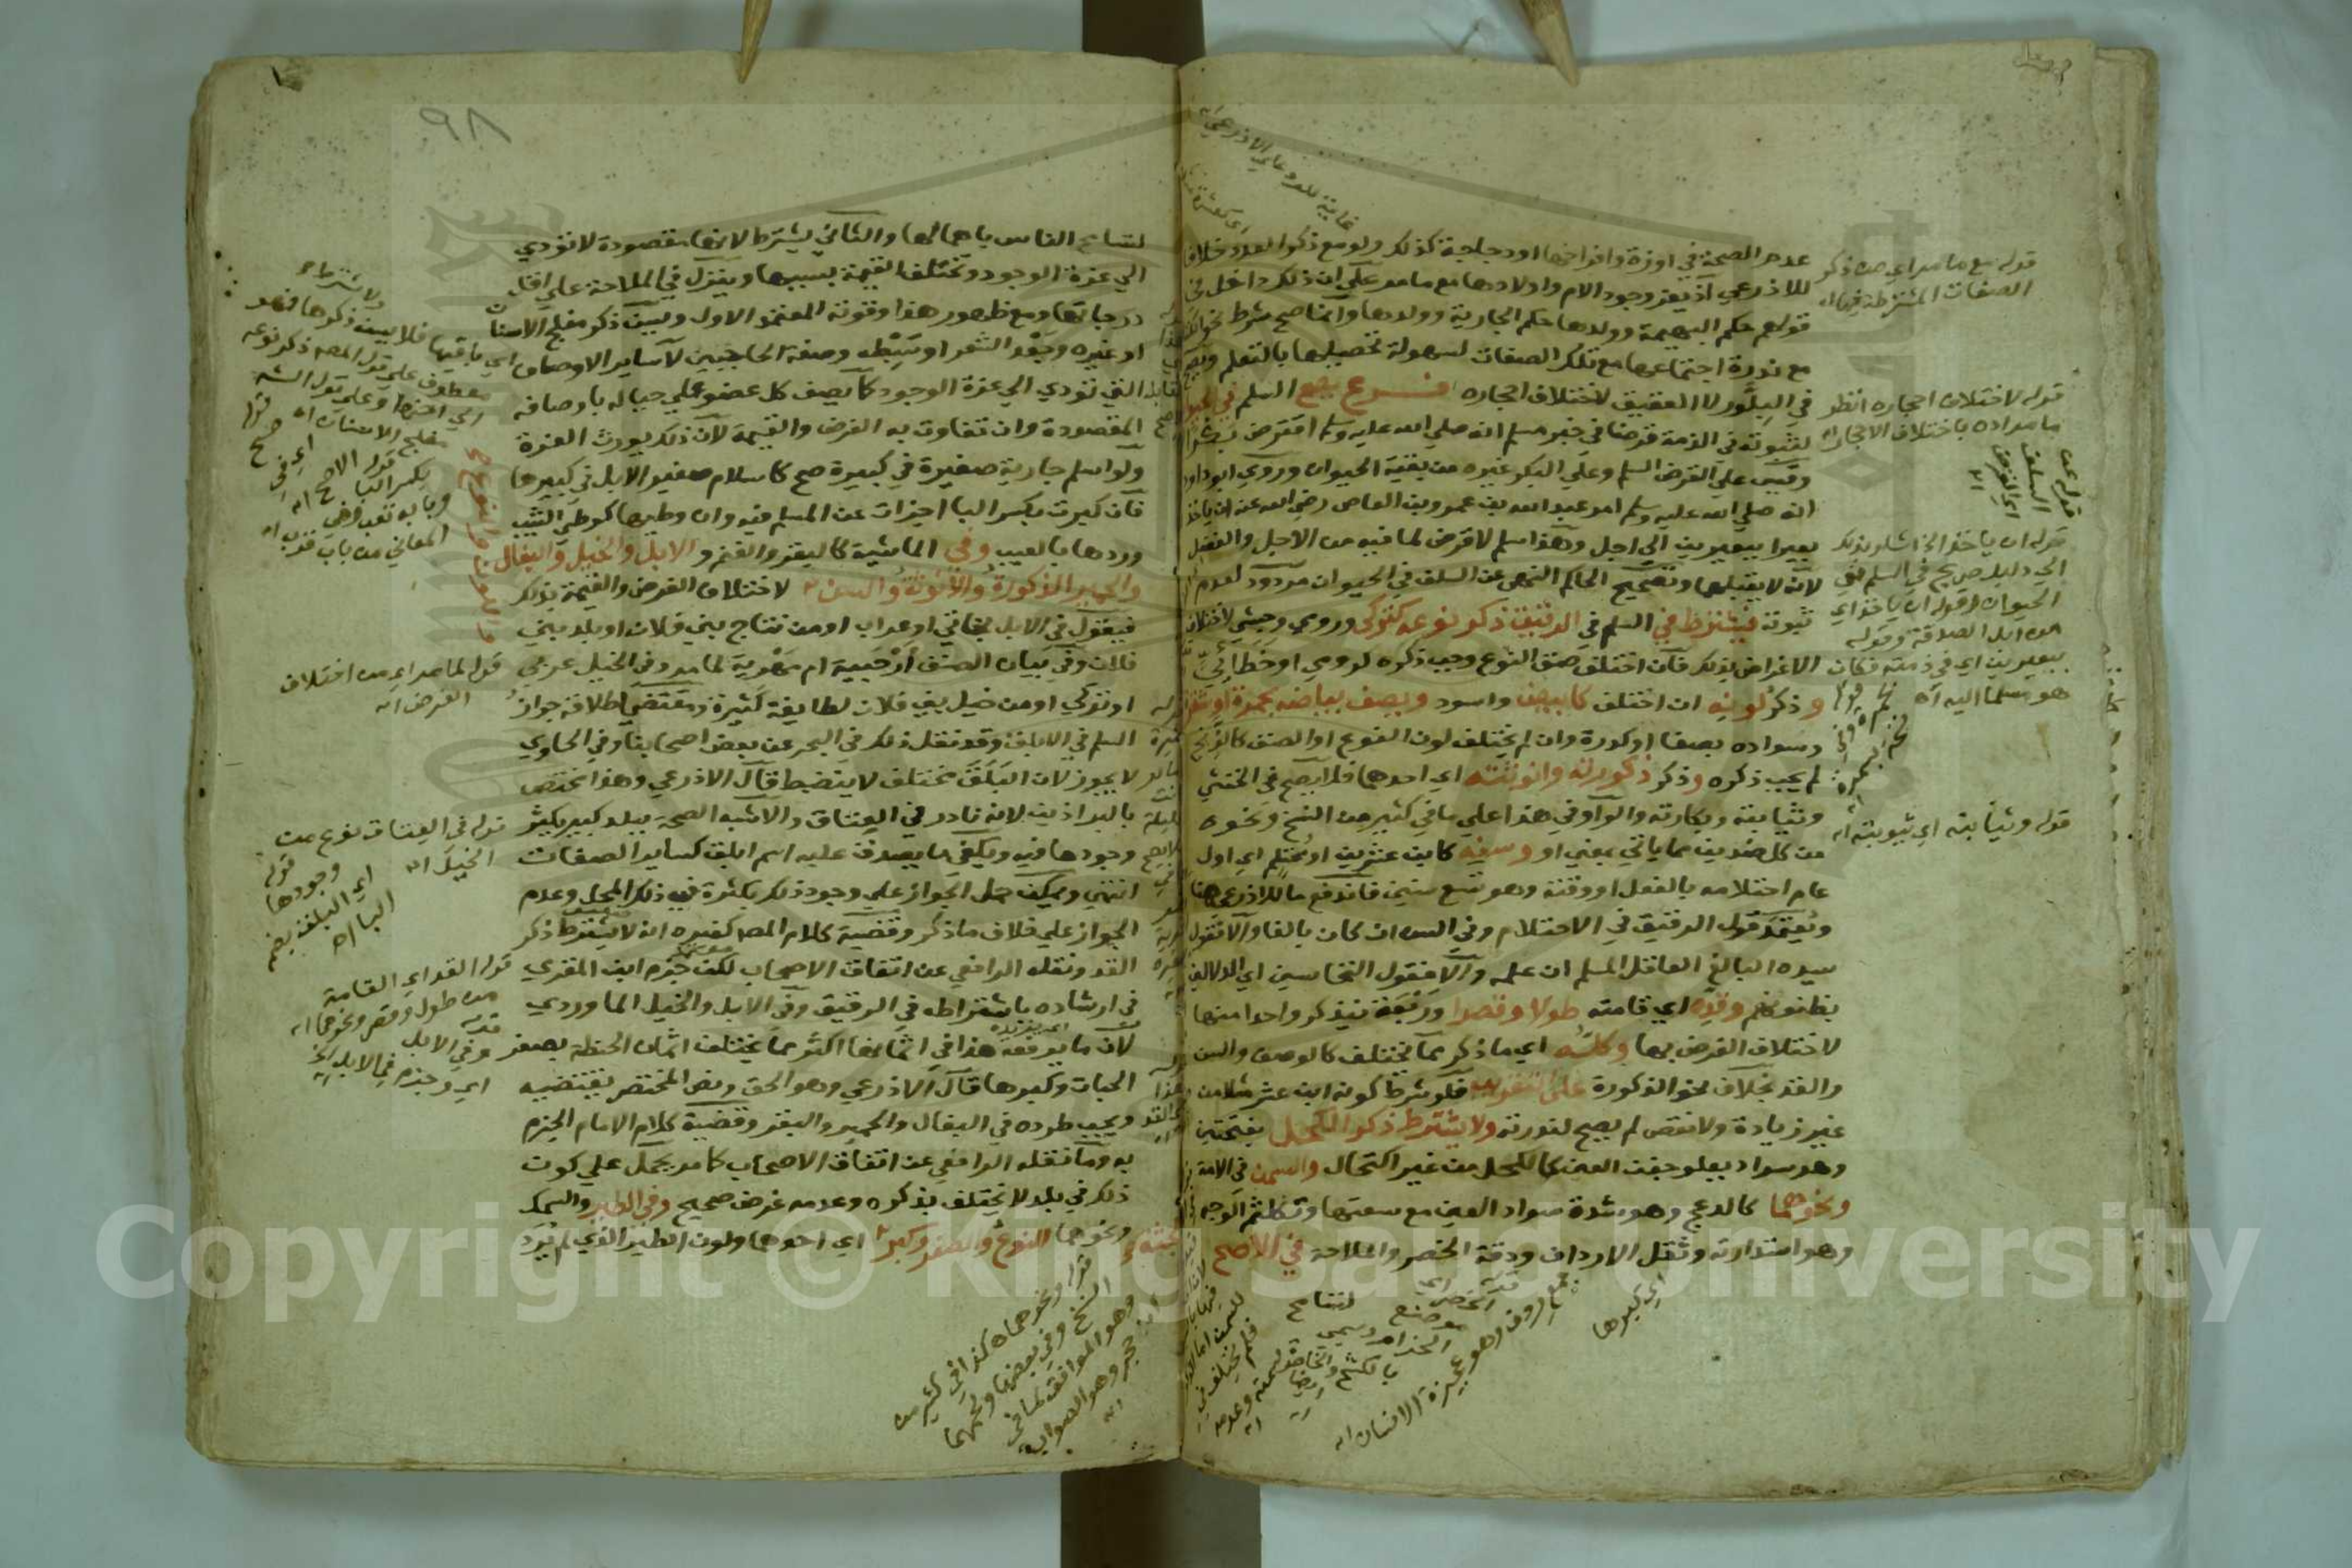 عدم الصحة في اوزة وافراخها او دجاجة كذلك ولو مع ذكر العدد خلافا
للاذرعي اذ يعز وجود الام واولادها مع ما مر علي ان ذلك داخل في
قولهم حكم البهيمة وولدها حكم الجارية وولدها وانما صح شرط نحو الكتابة
مع ندرة اجتماعها مع تلك الصفات لسهولة تحصيلها بالتعلم ويصح
في البلور لا العقيق لاختلاف احجاره فرع يصح السلم في الحيوان
لثبوته في الذمة قرضا في خبر مسلم انه صلي الله عليه وسلم اقترض بكرا
وقيس علي القرض السلم وعلي البكر غيره من بقية الحيوان وروي ابو داود
انه صلي الله عليه وسلم امر عبد الله بن عمرو بن العاص رضي الله عنه ان ياخذ
بعيرا ببعيرين الي اجل وهذا سلم لا قرض لما فيه من الاجل والفضل
لانه لا يقبلها وتصحيح الحاكم النهي عن السلف في الحيوان مردود لعدم
ثبوته فيشترط في السلم في الرقيق ذكر نوعه كتركي ورومي وحبشي لاختلاف
الاغراض بذلك فان اختلف صنف النوع وجب ذكره كرومي او خطائي
وذكر لونه ان اختلف كابيض واسود ويصف بياضه بحمرة او شقرة
وسواده بصفا او كدرة وان لم يختلف لون النوع او الصنف كالزنج
لم يجب ذكره وذكر ذكورته وانوثته اي احدهما فلا يصح في الخنثي
وثيابته وبكارته والواو في هذا علي ما في كثير من النسخ ونحوه
من كل ضدين مما ياتي بمعني او وسنه كابن عشرين او محتلم اي اول
عام احتلامه بالفعل او وقته وهو تسع سنين فاندفع ما للاذرعي هنا
ويعتمد قول الرقيق في الاحتلام وفي السن ان كان بالغا والا فقول
سيده البالغ العاقل المسلم ان علمه والا فقول النخاسين اي الدلالين
بظنونهم وقده اي قامته طولا وقصرا وربعة فيذكر واحدا منها
لاختلاف الغرض بها وكله اي ما ذكر مما يختلف كالوصف والسن
والقد بخلاف نحو الذكورة علي التقريب فلو شرط كونه ابن عشر مثلا من
غير زيادة ولا نقص لم يصح لندرته ولا يشترط ذكر الكحل بفتحتين
وهو سواد يعلو جفن العين كالكحل من غير اكتحال والسمن في الامة
ونحوهما كالدعج وهو شدة سواد العين مع سعتها وتكلثم الوجه
وهو استدارته وثقل الارداف ودقة الخصر والملاحة في الاصح
قوله مع ما مر اي من ذكر
الصفات المشترطة فيها اه
قوله لاختلاف احجاره انظر
ما مراده باختلاف الاحجار اه
قوله عن
السلف
اي القرض
اه
قوله ان ياخذ الخ اشار بذلك
الي دليل صريح في السلم في
الحيوان وقوله ان ياخذ اي
من ابل الصدقة وقوله
ببعيرين اي في ذمته فكان
هو مسلما اليه اه
قوله وثيابته اي ثيوبته اه
غاية للرد علي الاذرعي اه
لتسامح
جمع ردف وهو عجيزة الانسان اه
اي كبرها
٩٨
لتسامح الناس باهمالها والثاني يشترط لانها مقصودة لا تؤدي
الي عزة الوجود وتختلف القيمة بسببها وينزل في الملاحة علي اقل
درجاتها ومع ظهور هذا وقوته المعتمد الاول ويسن ذكر مفلج الاسنان
او غيره وجعد الشعر او سبطه وصفة الحاجبين لا ساير الاوصاف
التي تؤدي الي عزة الوجود كان يصف كل عضو علي حياله باوصافه
المقصودة وان تفاوت به الغرض والقيمة لان ذلك يورث العزة
ولو اسلم جارية صغيرة في كبيرة صح كاسلام صغير الابل في كبيرها
فان كبرت بكسر البا اجزات عن المسلم فيه وان وطيها كوطي الثيب
وردها بالعيب وفي الماشية كالبقر والغنم والابل والخيل والبغال
والحمير الذكورة والانوثة والسن لاختلاف الغرض والقيمة بذلك
فيقول في الابل بخاتي او عراب او من نتاج بني فلان او بلد بني
فلان وفي بيان الصنف ارحبية ام مهرية لما مر وفي الخيل عربي
او تركي او من خيل بني فلان لطايفة كثيرة ومقتضي اطلاقه جواز
السلم في الابلق وقد نقل ذلك في البحر عن بعض اصحابنا وفي الحاوي
لا يجوز لان البلق مختلف لا ينضبط قال الاذرعي وهذا يختص
بالبراذين لانه نادر في العتاق والاشبه الصحة ببلد كبير يكثر
وجودها فيه ويكفي ما يصدق عليه اسم ابلق كساير الصفات
انتهي ويمكن حمل الجواز علي وجود ذلك بكثرة في ذلك المحل وعدم
الجواز علي خلاف ما ذكر وقضية كلام المصه كغيره انه لا يشترط ذكر
القد ونقله الرافعي عن اتفاق الاصحاب لكن جزم ابن المقري
في ارشاده باشتراطه في الرقيق وفي الابل والخيل الماوردي
لان ما يرفعه هذا في اثمانها اكثر مما يختلف اثمان الحنطة بصغر
الحبات وكبرها قال الاذرعي وهو الحق ونص المختصر يقتضيه
ويجب طرده في البغال والحمير والبقر وقضية كلام الامام الجزم
به وما نقله الرافعي عن اتفاق الاصحاب كما مر يحمل علي كون
ذلك في بلد لا يختلف بذكره وعدمه غرض صحيح وفي الطير والسمك
ونحوهما النوع والصغر وكبر الجثة اي احدهما ولون الطير الذي لم يرد
معطوف علي قول المصه ذكر نوعه
مفلج الاسنان اه
قوله لما مر اي من اختلاف
الغرض اه
قوله في العتاق نوع من
الخيل اه
قوله
وجودها
اي البلق بضم
البا اه
قوله القد اي القامة
من طول وقصر ونحوهما اه
قوله
وفي الابل
اي وجزم في الابل الخ
قوله ونحوهما كذا في كثير من
النسخ وفي بعضها ولحمهما
وهو الموافق لما في
وهو الصواب
اه
Copyright © King Saud University